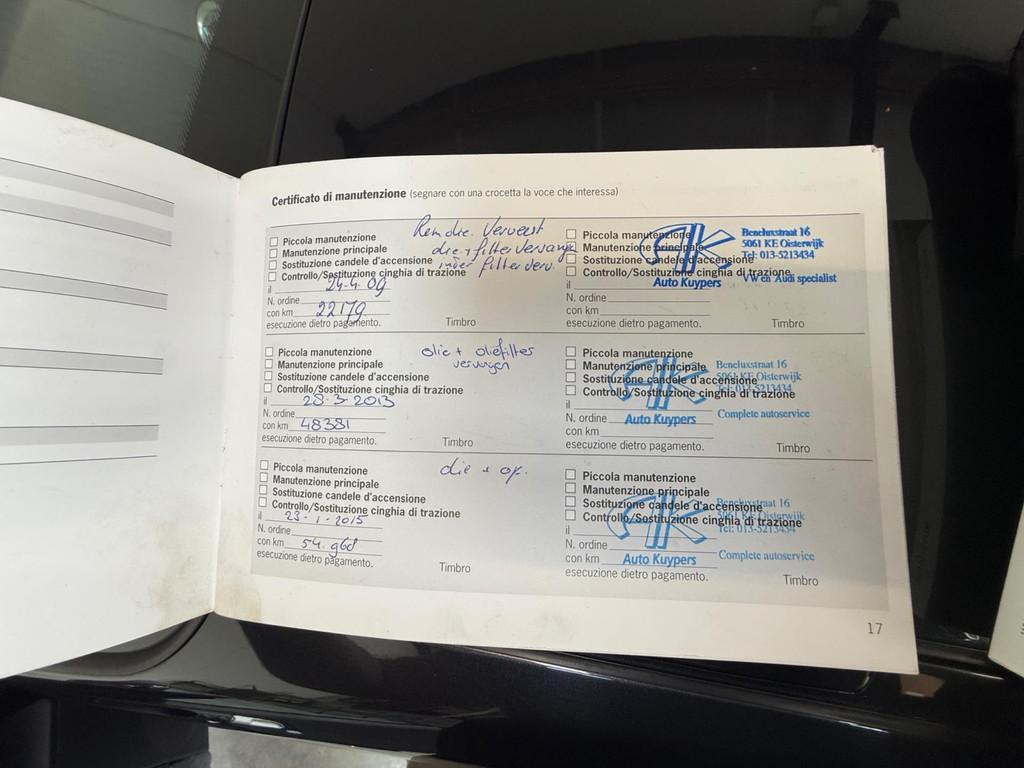 Certificato di manutenzione (segnare con una crocetta la voce che interessa)
Piccola manutenzione
Manutenzione principale
Sostituzione candele d'accensione
Controllo/Sostituzione cinghia di trazione
il 24-4-09
N. ordine
con km 22179
esecuzione dietro pagamento.
Timbro
Ververst
filter
filter verv.
Piccola manutenzione
Manutenzione principale
Sostituzione candele d'accensione
Controllo/Sostituzione cinghia di trazione
il
N. ordine
con km
esecuzione dietro pagamento.
Timbro
AK
Auto Kuypers
Beneluxstraat 16
5061 KE Oisterwijk
Tel: 013-5213434
VW en Audi specialist
Piccola manutenzione
Manutenzione principale
Sostituzione candele d'accensione
Controllo/Sostituzione cinghia di trazione
il 28-3-2013
N. ordine
con km 48381
esecuzione dietro pagamento.
Timbro
olie + oliefilter
Piccola manutenzione
Manutenzione principale
Sostituzione candele d'accensione
Controllo/Sostituzione cinghia di trazione
il
N. ordine
con km
esecuzione dietro pagamento.
Timbro
AK
Auto Kuypers
Beneluxstraat 16
5061 KE Oisterwijk
Tel: 013-5213434
Complete autoservice
Piccola manutenzione
Manutenzione principale
Sostituzione candele d'accensione
Controllo/Sostituzione cinghia di trazione
il 23-1-2015
N. ordine
con km 54.968
esecuzione dietro pagamento.
Timbro
olie + of.
Piccola manutenzione
Manutenzione principale
Sostituzione candele d'accensione
Controllo/Sostituzione cinghia di trazione
il
N. ordine
con km
esecuzione dietro pagamento.
Timbro
AK
Auto Kuypers
Beneluxstraat 16
5061 KE Oisterwijk
Tel: 013-5213434
Complete autoservice
17